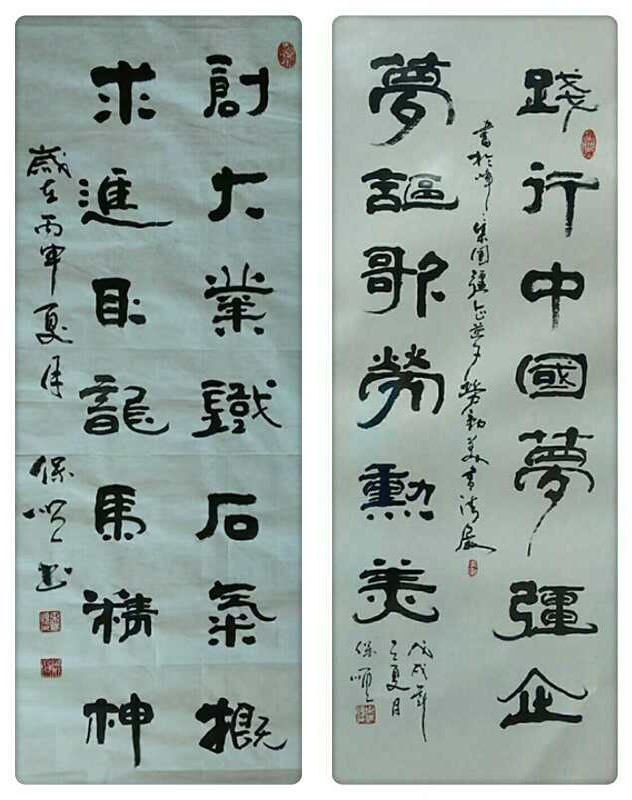 創大業鐵石氣概
求進取龍馬精神
歲在丙申夏月
保順書
踐行中國夢彊企
夢謳歌勞勳美
書於峰峰集團彊企夢勞動美書法展
戊戌年
之夏月
保順